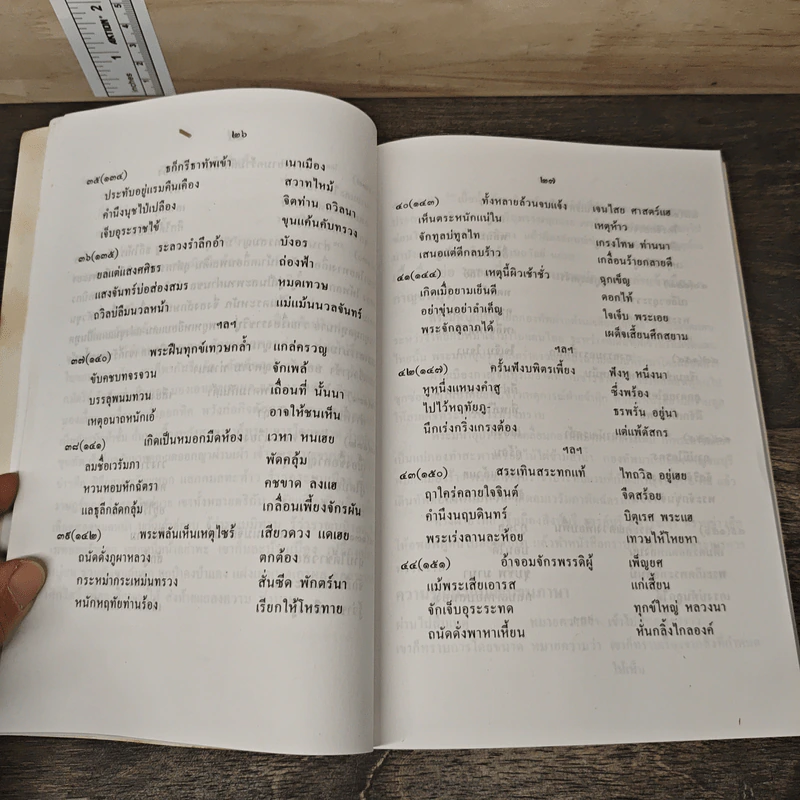 2
5
1
ACTION
INCHES
๒๖
๓๕(๑๓๔) ธก็กรีธาทัพเข้า เนาเมือง
ประทับอยู่แรมคืนเคือง สวาทไหม้
คำนึงนุชไป่เปลือง จิตท่าน ถวิลนา
เจ็บอุระราชไข้ ขุนแค้นคับทรวง
๓๖(๑๓๕) ระลวงรำลึกอ้า บังอร
ยลแต่แสงศศิธร ถ่องฟ้า
แสงจันทร์บ่อส่องสมร หมดเทวษ
ถวิลบ่ลืมนวลหน้า แม่แม้นนวลจันทร์
ฯลฯ
๓๗(๑๔๐) พระฝืนทุกข์เทวษกล้ำ แกล่ครวญ
ขับคชบทจรจวน จักเพล้
บรรลุพนมทวน เถื่อนที่ นั้นนา
เหตุอนาถหนักเอ้ อาจให้ชนเห็น
๓๘(๑๔๑) เกิดเป็นหมอกมืดห้อง เวหา หนเฮย
ลมชื่อเวรัมภา พัดคลุ้ม
หวนหอบหักฉัตรา คชขาด ลงแฮ
แลธุลีกลัดกลุ้ม เกลื่อนเพี้ยงจักรผัน
๓๙(๑๔๒) พระพลันเห็นเหตุไซร้ เสียวดวง แดเฮย
ถนัดดั่งภูผาหลวง ตกต้อง
กระหม่ากระเหม่นทรวง สั่นซีด พักตร์นา
หนักหฤทัยท่านร้อง เรียกให้โหรทาย
๒๗
๔๐(๑๔๓) ทั้งหลายล้วนจบแจ้ง เจนไสย ศาสตร์แฮ
เห็นตระหนักแน่ใน เหตุห้าว
จักทูลบ่ทูลไท เกรงโทษ ท่านนา
เสนอแต่ดีกลบร้าว เกลื่อนร้ายกลายดี
๔๑(๑๔๔) เหตุนี้ผิวเช้าชั่ว ฉุกเข็ญ
เกิดเมื่อยามเย็นดี ดอกไท้
อย่าขุ่นอย่าลำเค็ญ ใจเจ็บ พระเอย
พระจักลุลาภได้ เผด็จเสี้ยนศึกสยาม
ฯลฯ
๔๒(๑๔๗) ครั้นฟังบพิตรเพี้ยง ฟังหู หนึ่งนา
หูหนึ่งแหนงคำสู ซึ่งพร้อง
ไปไว้หฤทัยภู- ธรพรั่น อยู่นา
นึกเร่งกริ่งเกรงต้อง แต่แพ้ดัสกร
ฯลฯ
๔๓(๑๕๐) สระเทินสระทกแท้ ไทถวิล อยู่เฮย
ฤาใคร่คลายใจจินต์ จืดสร้อย
คำนึงนฤบดินทร์ บิตุเรศ พระแฮ
พระเร่งลานละห้อย เทวษไห้โหยหา
๔๔(๑๕๑) อ้าจอมจักรพรรดิผู้ เพ็ญยศ
แม้พระเสียเอารส แก่เสี้ยน
จักเจ็บอุระระทด ทุกข์ใหญ่ หลวงนา
ถนัดดั่งพาหาเหี้ยน หั่นกลิ้งไกลองค์